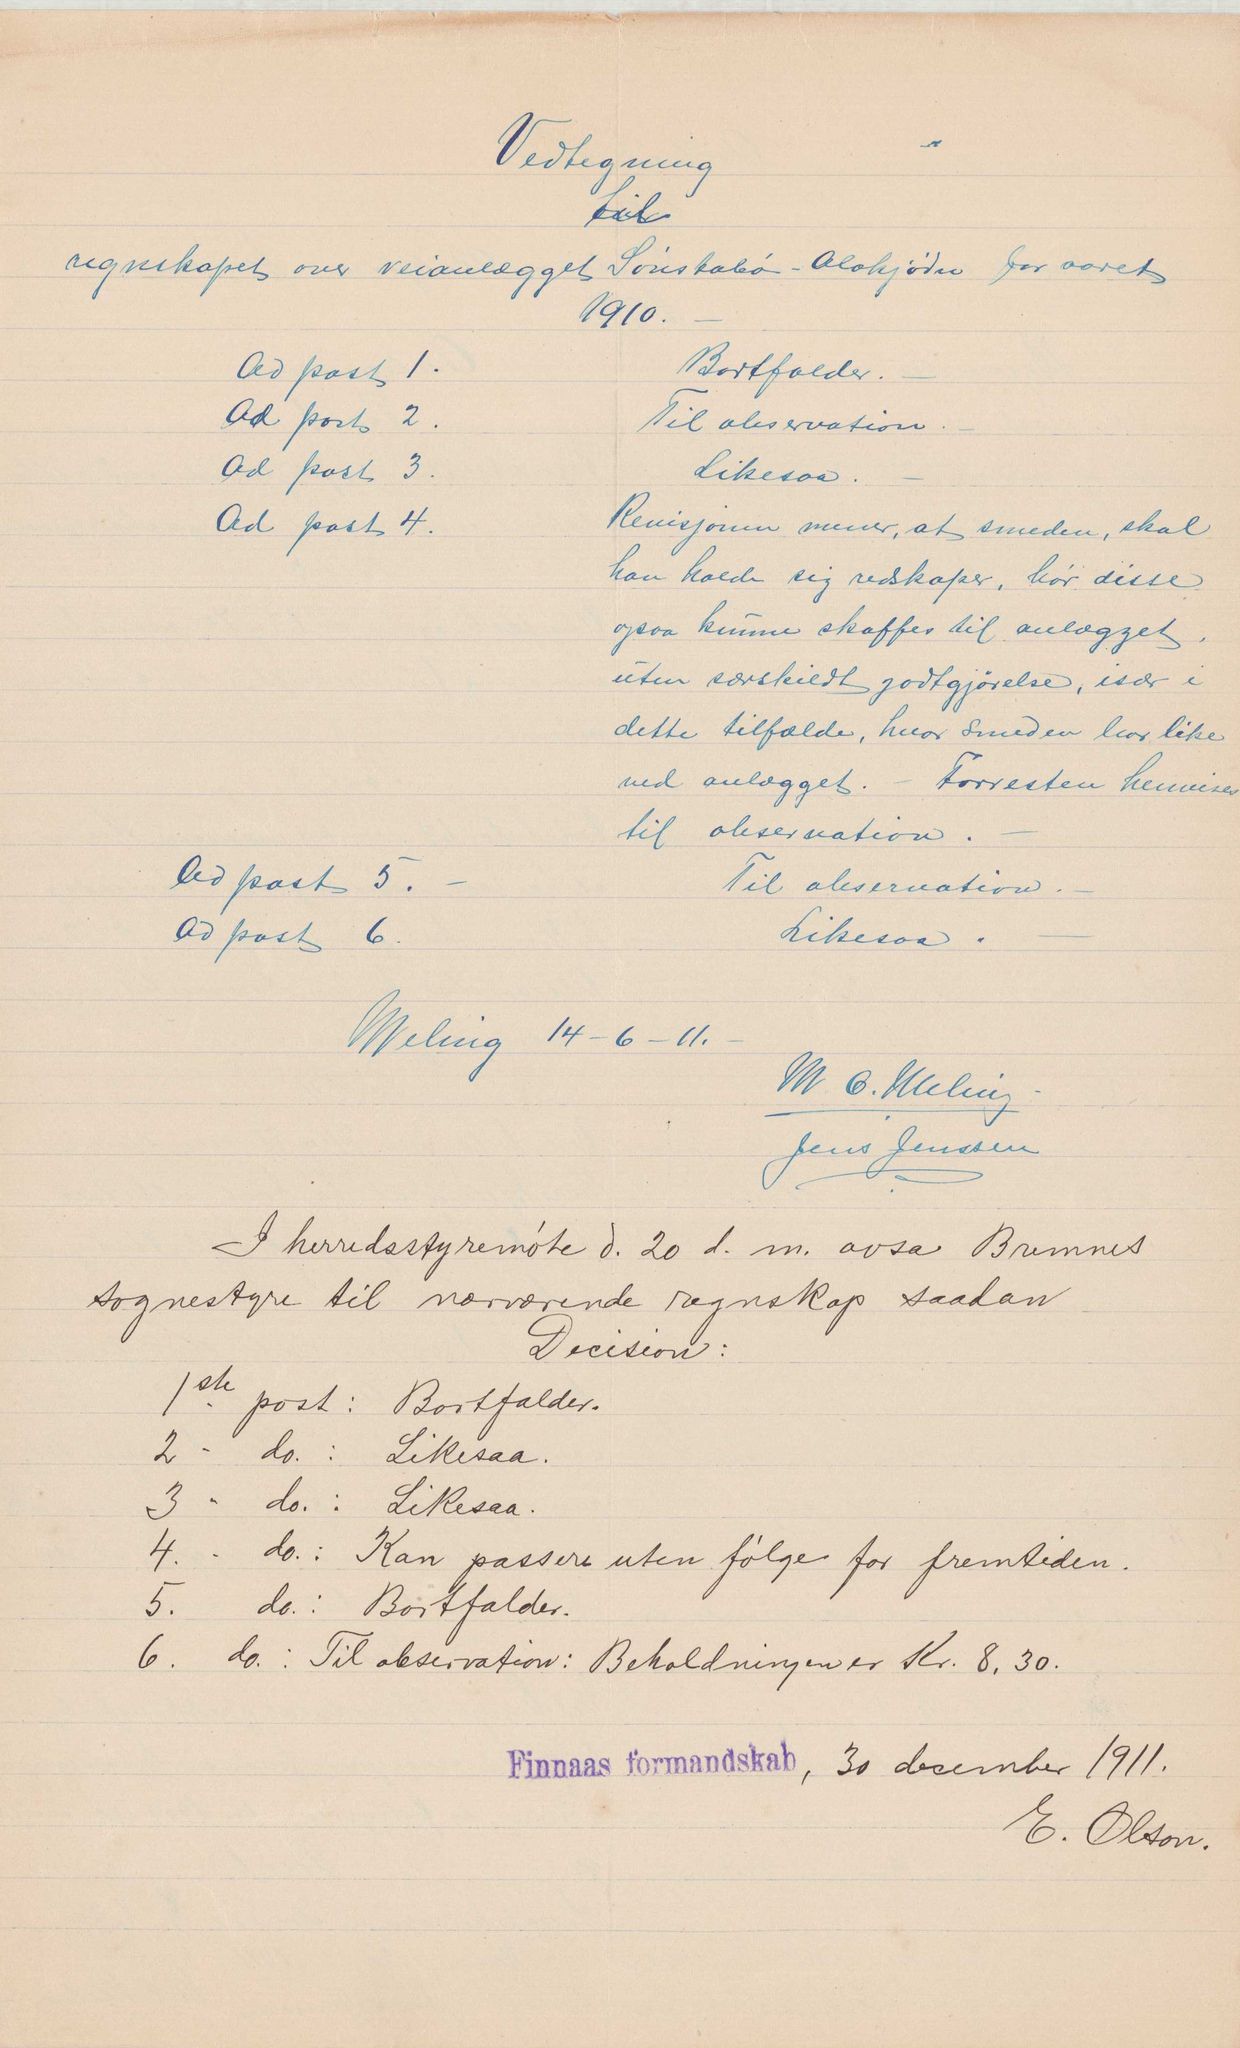 Vedtegning
til
regnskapet over veianlægget Sönstabö - Alokjödn for aaret
1910. —
Ad post 1. Bortfalder. —
Ad post 2. Til observation. —
Ad post 3. Likesaa. —
Ad post 4. Revisjonen mener, at smeden, skal
han holde sig redskaper, bör disse
ogsaa kunne skaffes til anlægget,
uten særskildt godtgjörelse, især i
dette tilfælde, hvor smeden bor like
ved anlægget. — Forresten henvises
til observation. —
Ad post 5. — Til observation. —
Ad post 6. Likesaa. —
Meling 14-6-11. —
M O. Meling
Jens Jenssen
I herredsstyremöte d. 20 d. m. avsa Bremnes
sognestyre til nærværende regnskap saadan
Decision:
1ste post: Bortfalder.
2 - do.: Likesaa.
3 - do.: Likesaa.
4. - do.: Kan passere uten fölge for fremtiden.
5. do.: Bortfalder.
6. do.: Til observation: Beholdningen er Kr. 8,30.
Finnaas formandskab, 30 december 1911.
E. Olson.